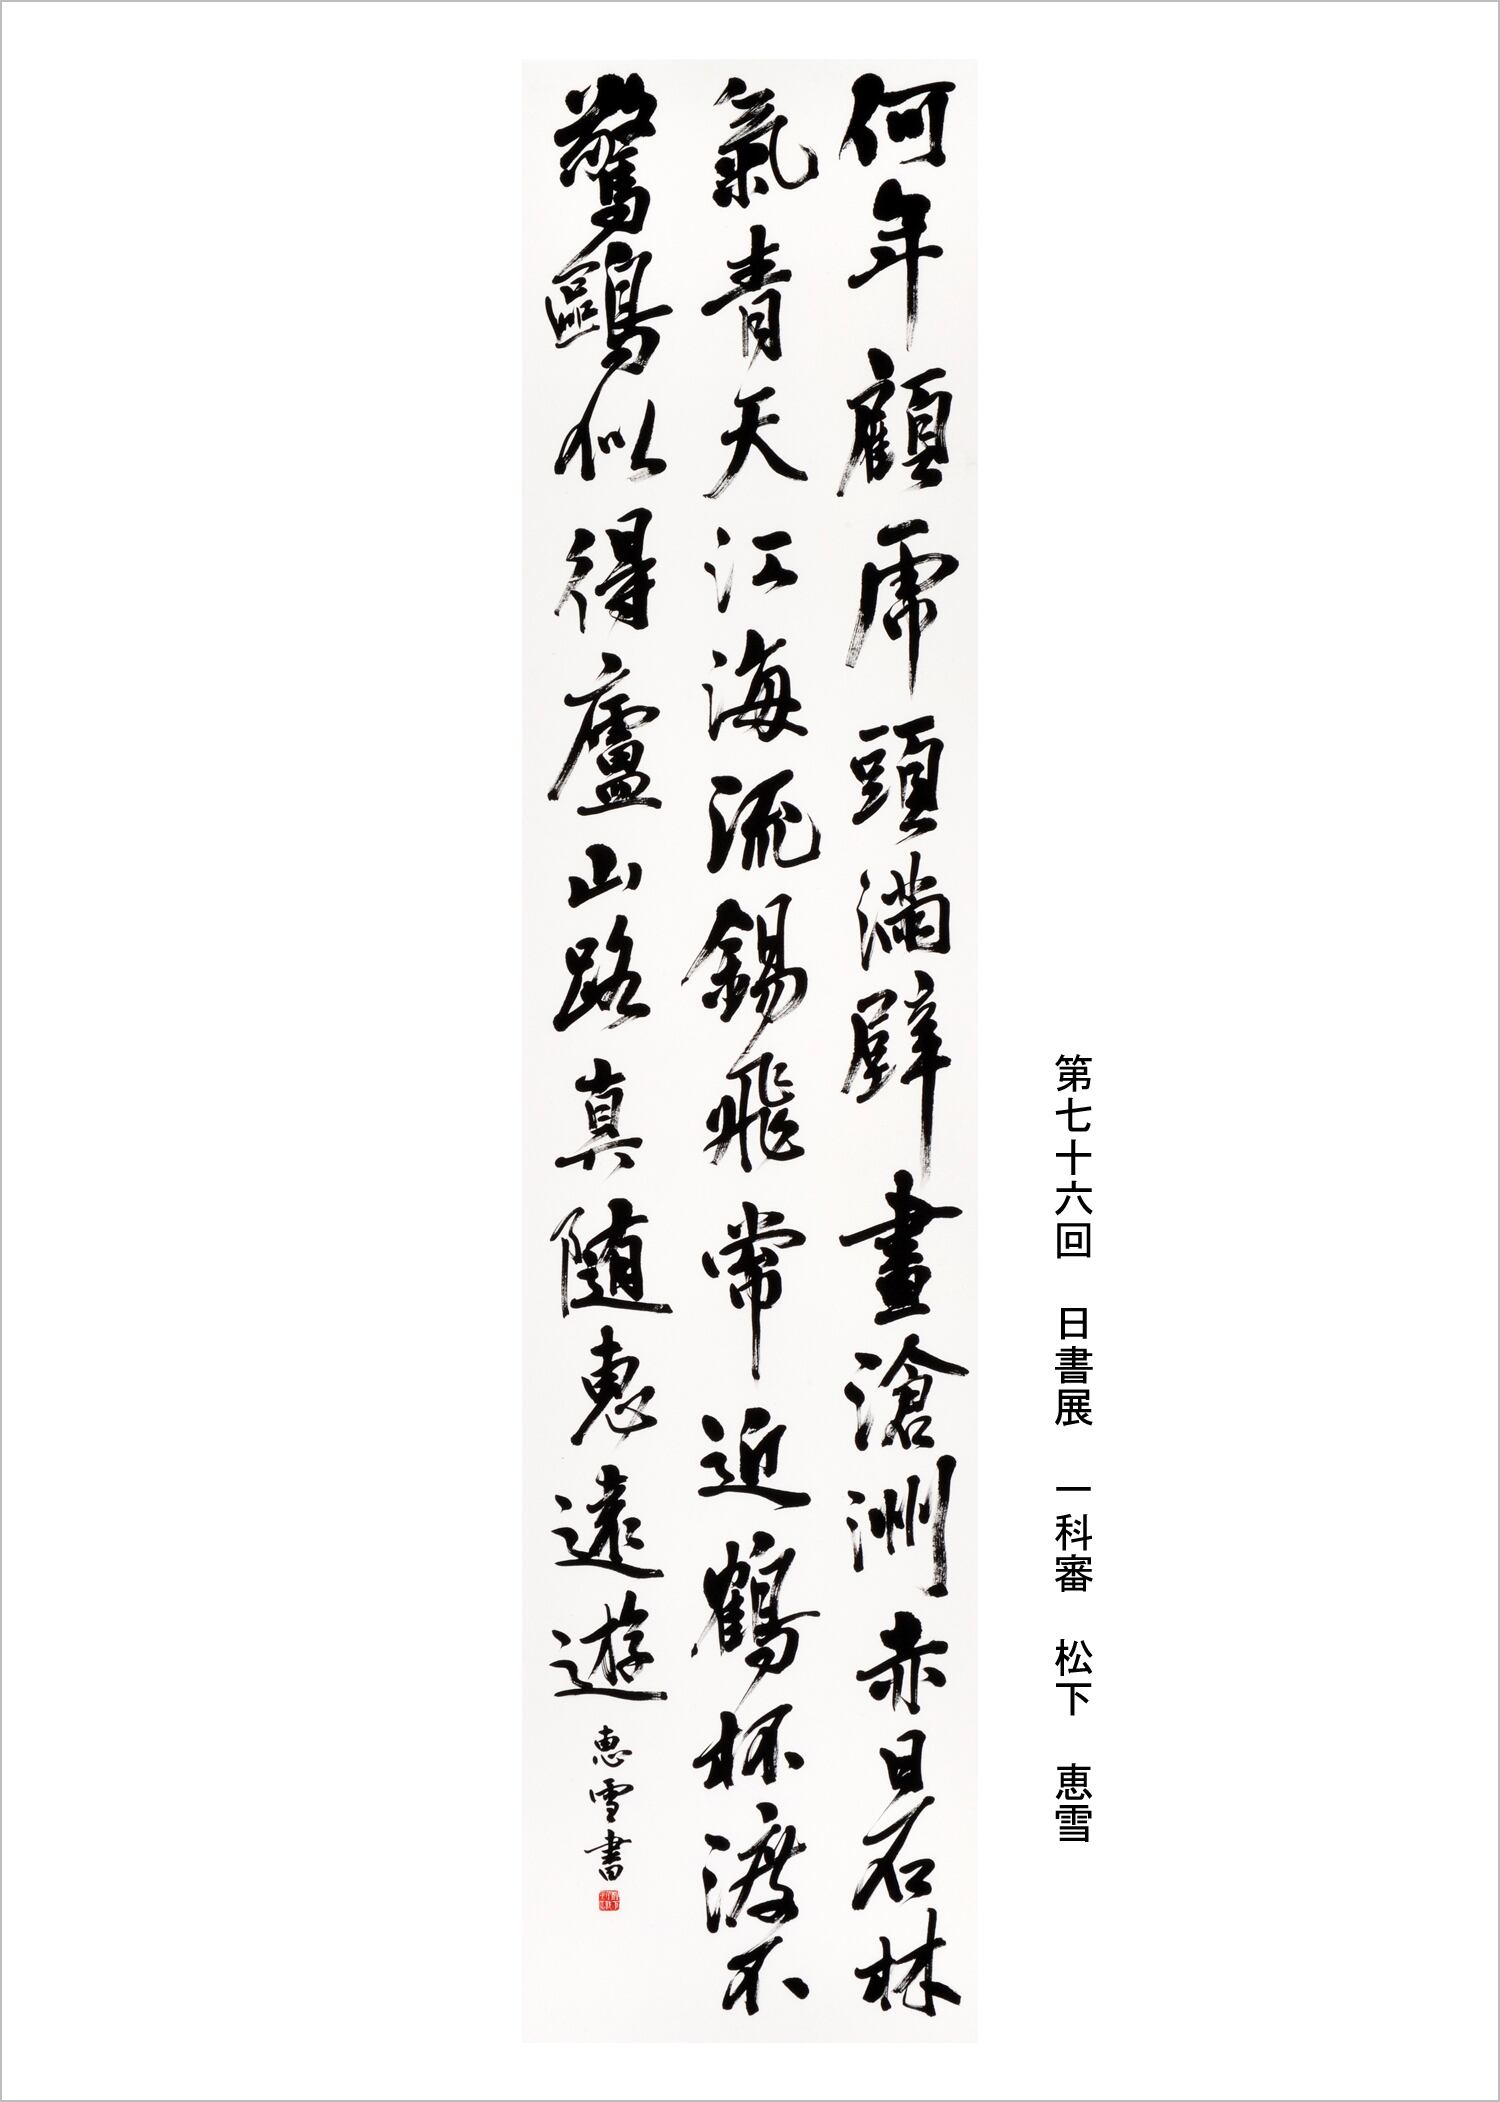 第七十六回　日書展　一科審　松下　恵雪
何年顧虎頭滿壁畫滄洲赤日石林
氣青天江海流錫飛常近鶴杯渡不
驚鷗似得廬山路真随惠遠遊
恵雪書